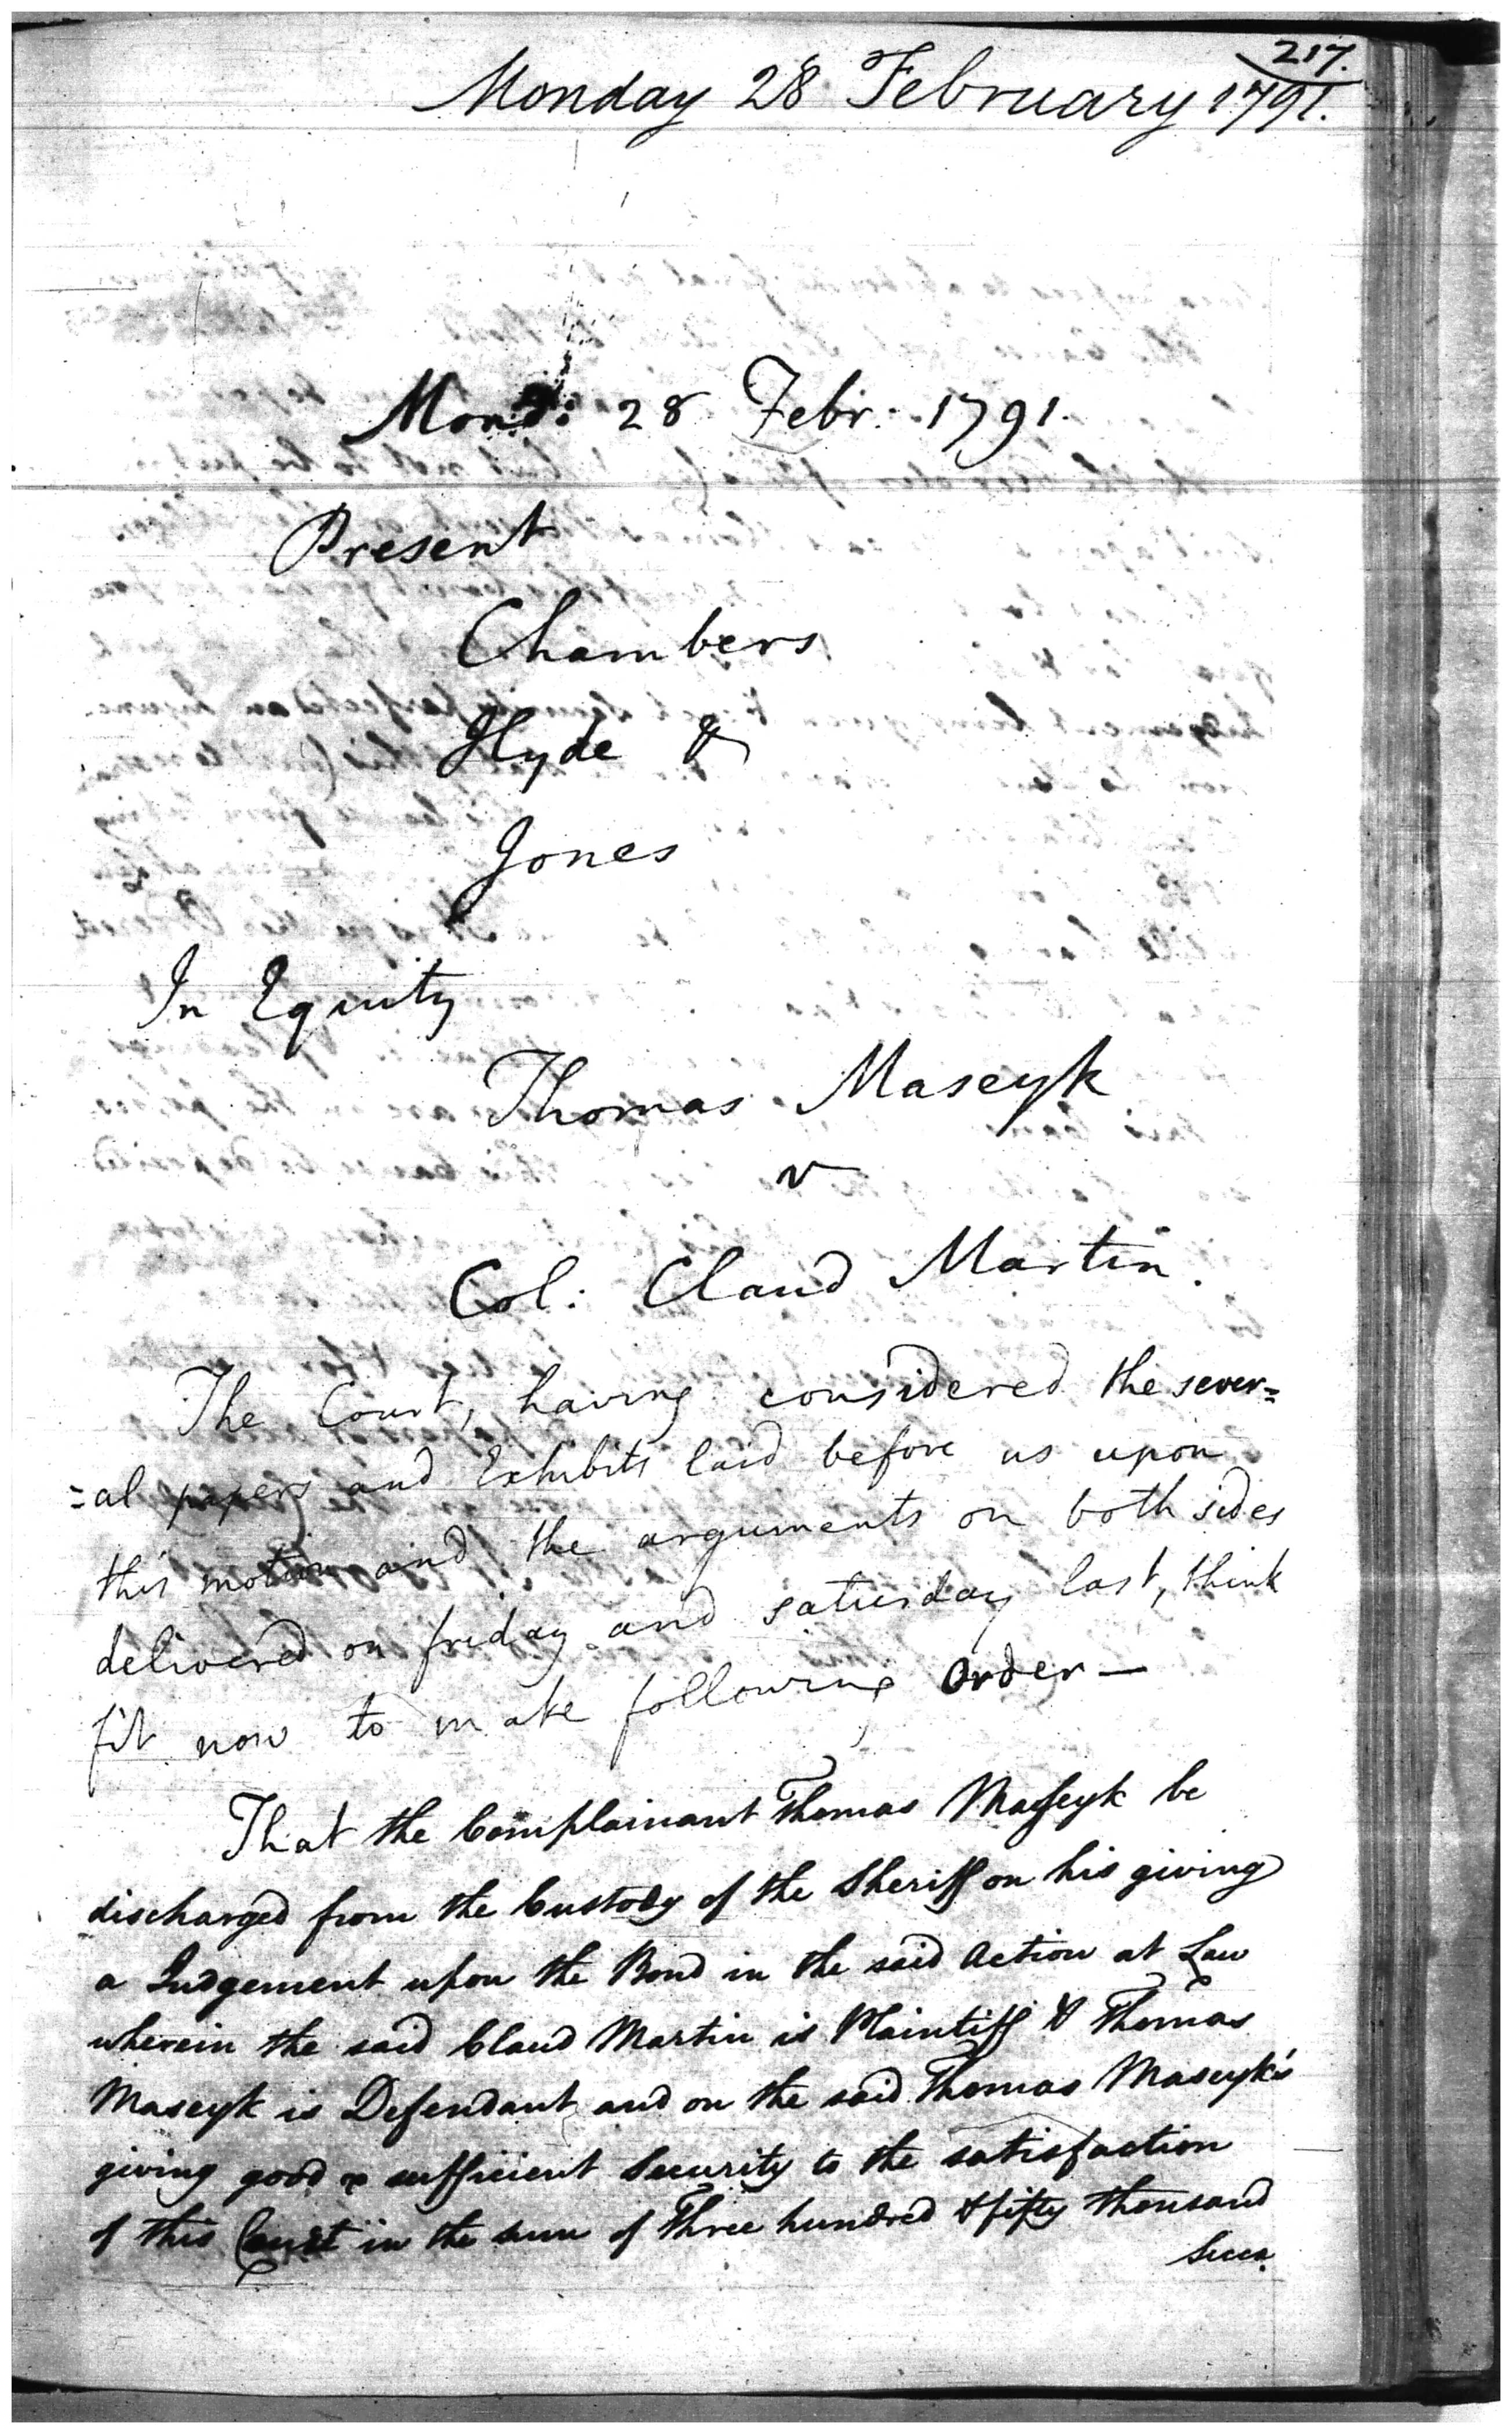 217.
Monday 28 February 1791.
Mond: 28 Febr: 1791.
Present
Chambers
Hyde &
Jones
In Equity
Thomas Maseyk
v
Col: Claud Martin.
The Court, having considered the sever=
=al papers and Exhibits laid before us upon
this motion and the arguments on both sides
delivered on friday and saturday last, think
fit now to make following Order—
That the Complainant Thomas Maſseyk be
discharged from the Custody of the Sheriff on his giving
a Judgement upon the Bond in the said Action at Law
wherein the said Claud Martin is Plaintiff & Thomas
Maseyk is Defendant and on the said Thomas Maseyk's
giving good & sufficient Security to the satisfaction
of this Court in the sum of Three hundred & fifty thousand
Sicca